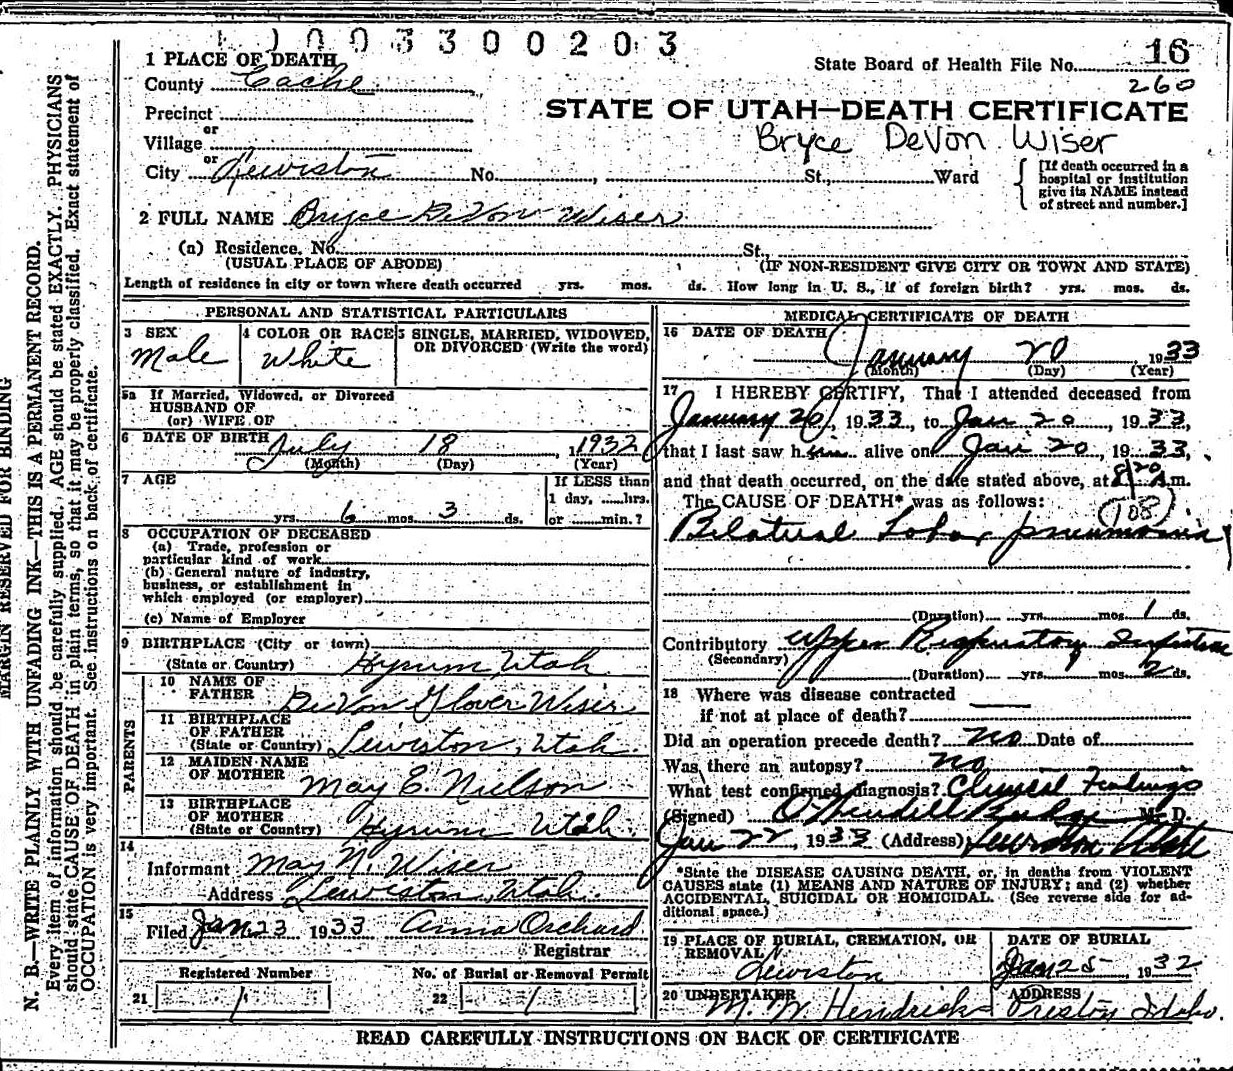 1003300203
16
1 PLACE OF DEATH
State Board of Health File No.
260
County Cache
STATE OF UTAH—DEATH CERTIFICATE
Precinct
Bryce DeVon Wiser
or
Village
or
City Lewiston No. , St., Ward
[If death occurred in a
hospital or institution
give its NAME instead
of street and number.]
2 FULL NAME Bryce DeVon Wiser
(a) Residence. No. St.,
(USUAL PLACE OF ABODE) (IF NON-RESIDENT GIVE CITY OR TOWN AND STATE)
Length of residence in city or town where death occurred yrs. mos. ds. How long in U. S., if of foreign birth? yrs. mos. ds.
PERSONAL AND STATISTICAL PARTICULARS
3 SEX
Male
4 COLOR OR RACE
White
5 SINGLE, MARRIED, WIDOWED,
OR DIVORCED (Write the word)
5a If Married, Widowed, or Divorced
HUSBAND OF
(or) WIFE OF
6 DATE OF BIRTH July 18, 1932
(Month) (Day) (Year)
7 AGE
yrs. 6 mos. 3 ds.
If LESS than
1 day, hrs.
or min.?
8 OCCUPATION OF DECEASED
(a) Trade, profession or
particular kind of work
(b) General nature of industry,
business, or establishment in
which employed (or employer)
(c) Name of Employer
9 BIRTHPLACE (City or town)
(State or Country) Hyrum, Utah
PARENTS
10 NAME OF
FATHER DeVon Glover Wiser
11 BIRTHPLACE
OF FATHER
(State or Country) Lewiston, Utah.
12 MAIDEN NAME
OF MOTHER May E. Nielson
13 BIRTHPLACE
OF MOTHER
(State or Country) Hyrum Utah.
14
Informant May N. Wiser
Address Lewiston, Utah.
15
Filed Jan. 23 1933 Anna Orchard
Registrar
Registered Number
21 1
No. of Burial or Removal Permit
22 1
MEDICAL CERTIFICATE OF DEATH
16 DATE OF DEATH
January 20, 1933
(Month) (Day) (Year)
17 I HEREBY CERTIFY, That I attended deceased from
January 20, 1933, to Jan 20, 1933,
that I last saw him alive on Jan 20, 1933,
and that death occurred, on the date stated above, at 8/20 A.m.
The CAUSE OF DEATH* was as follows:
(108)
Bilateral Lobar pneumonia
(Duration) yrs. mos. 1 ds.
Contributory Upper Respiratory Infection
(Secondary)
(Duration) yrs. mos. 2 ds.
18 Where was disease contracted
if not at place of death?
Did an operation precede death? no Date of
Was there an autopsy? no
What test confirmed diagnosis? Clinical Findings
(Signed) O. Wendell Budge M. D.
Jan 22, 1933 (Address) Lewiston Utah
*State the DISEASE CAUSING DEATH, or, in deaths from VIOLENT
CAUSES state (1) MEANS AND NATURE OF INJURY; and (2) whether
ACCIDENTAL, SUICIDAL OR HOMICIDAL. (See reverse side for ad-
ditional space.)
19 PLACE OF BURIAL, CREMATION, OR
REMOVAL
Lewiston
DATE OF BURIAL
Jan 25, 1932
20 UNDERTAKER
M. W. Hendricks
ADDRESS
Preston Idaho.
READ CAREFULLY INSTRUCTIONS ON BACK OF CERTIFICATE
MARGIN RESERVED FOR BINDING
N. B.—WRITE PLAINLY WITH UNFADING INK—THIS IS A PERMANENT RECORD.
Every item of information should be carefully supplied. AGE should be stated EXACTLY. PHYSICIANS
should state CAUSE OF DEATH in plain terms, so that it may be properly classified. Exact statement of
OCCUPATION is very important. See instructions on back of certificate.